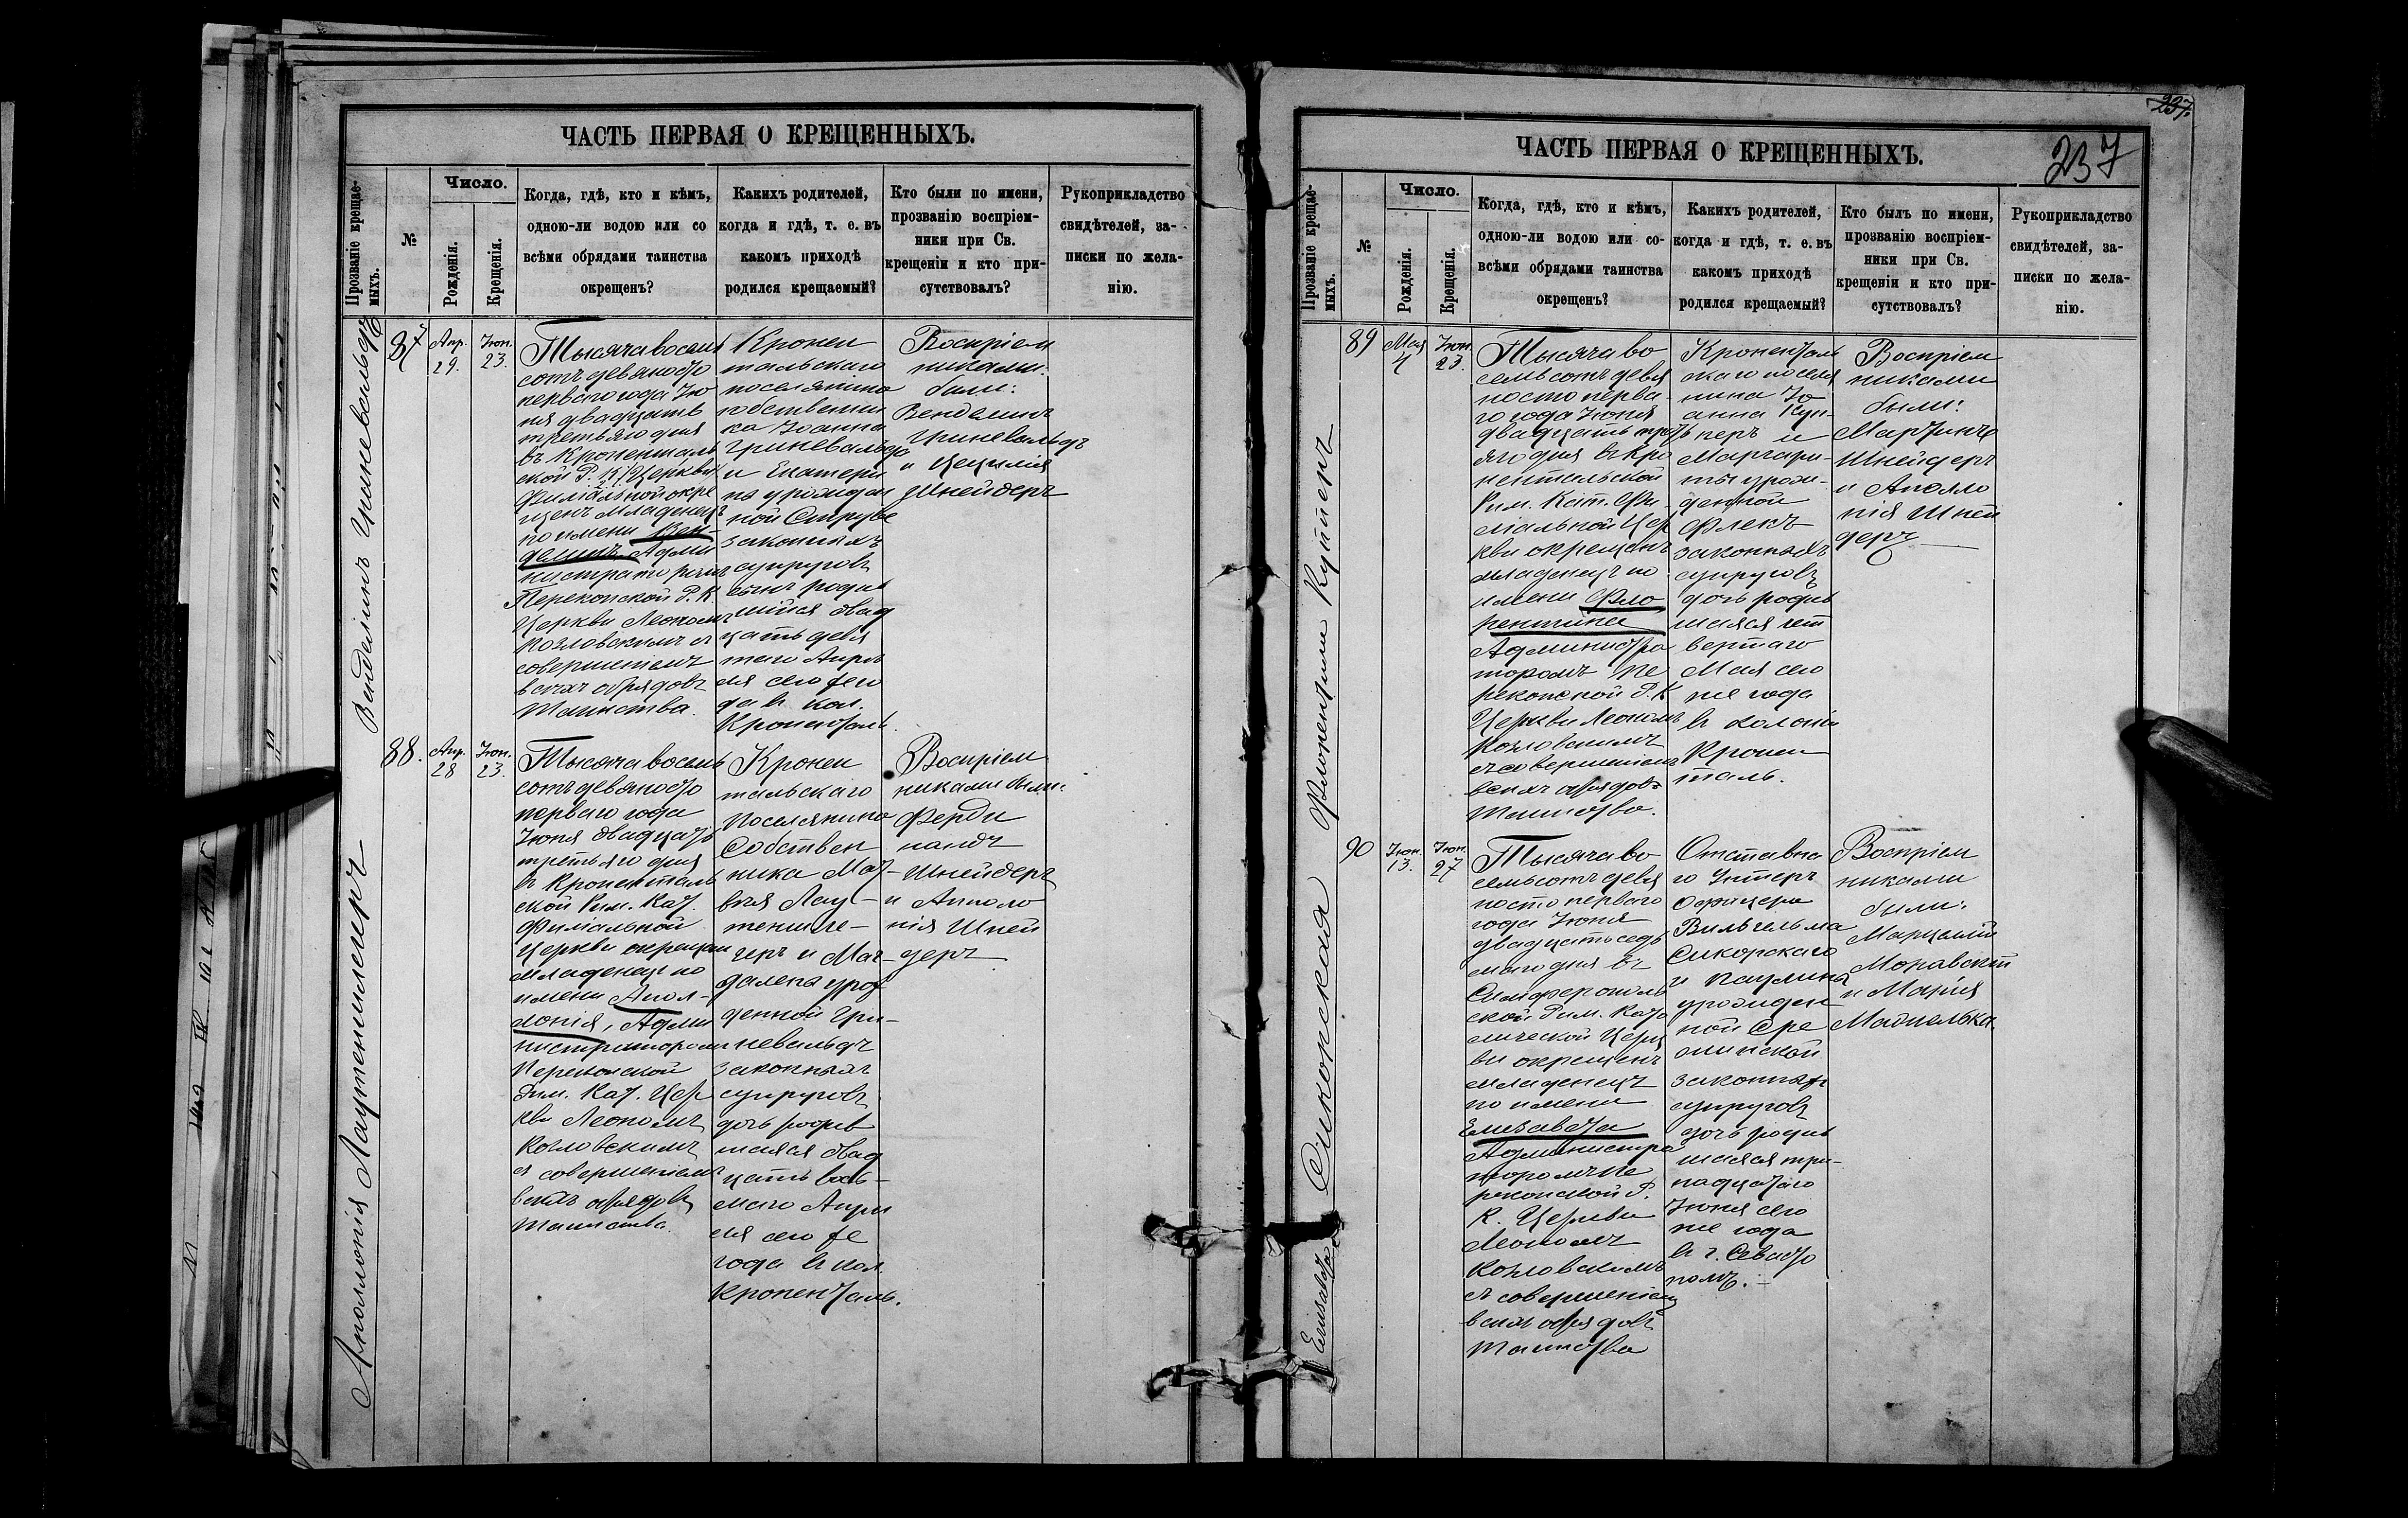 ЧАСТЬ ПЕРВАЯ О КРЕЩЕННЫХЪ.
Прозваніе крещае-
мыхъ.
№
Число.
Рожденія.
Крещенія.
Когда, гдѣ, кто и кѣмъ,
одною-ли водою или со
всѣми обрядами таинства
окрещенъ?
Какихъ родителей,
когда и гдѣ, т. е. въ
какомъ приходѣ
родился крещаемый?
Кто были по имени,
прозванію воспріем-
ники при Св.
крещеніи и кто при-
сутствовалъ?
Рукоприкладство
свидѣтелей, за-
писки по жела-
нію.
Венделинъ Гриневальдъ
87
Апр.
29.
Іюн.
23.
Тысяча восемь
сотъ девяносто
перваго года Ію
ня двадцать
третьяго дня
въ Кроненталь
ской Р. К. Церкви
Филіальной окре
щенъ младенецъ
по имени Вен-
делинъ Адми
нистраторомъ
Перекопской Р. К.
Церкви Леономъ
Козловскимъ съ
совершеніемъ
всѣхъ обрядовъ
Таинства.
Кронен
тальскаго
поселянина
собственни
ка Іоанна
Гриневальдъ
и Екатери
на урожден
ной Струбе
законныхъ
супруговъ
сынъ родив
шійся двад
цать девя
таго Апрѣ
ля сего же го
да въ кол.
Кроненталь.
Воспріем
никами
были:
Венделинъ
Гриневальдъ
и Цецилія
Шнейдеръ
Аполлонія Лаутеншлегеръ
88.
Апр.
28
Іюн.
23.
Тысяча восемь
сотъ девяносто
перваго года
Іюня двадцать
третьяго дня
въ Кроненталь
ской Рим. Кат.
Филіальной
Церкви окрещен
младенецъ по
имени Апол-
лонія, Адми
нистраторомъ
Перекопской
Рим. Кат. Цер
кви Леономъ
Козловскимъ
съ совершеніемъ
всѣхъ обрядовъ
Таинства.
Кронен
тальскаго
Поселянина
Собствен
ника Мат-
вѣя Лау-
теншле-
геръ и Маг-
далена урож
денной Гри-
невальдъ
законныхъ
супруговъ
дочь родив
шаяся двад
цать вось-
маго Апрѣ
ля сего же
года въ кол.
Кроненталь.
Воспріем
никами были:
Ферди
нандъ
Шнейдеръ
и Апполо
нія Шней
деръ
ЧАСТЬ ПЕРВАЯ О КРЕЩЕННЫХЪ.
237
237
Прозваніе крещае-
мыхъ.
№
Число.
Рожденія.
Крещенія.
Когда, гдѣ, кто и кѣмъ,
одною-ли водою или со-
всѣми обрядами таинства
окрещенъ?
Какихъ родителей,
когда и гдѣ, т. е. въ
какомъ приходѣ
родился крещаемый?
Кто былъ по имени,
прозванію воспріем-
ники при Св.
крещеніи и кто при-
сутствовалъ?
Рукоприкладство
свидѣтелей, за-
писки по жела-
нію.
89
Мая
4
Іюн
23.
Тысяча во
семьсотъ девя
носто перва-
го года Іюня
двадцать треть
яго дня въ Кро
нентальской
Рим. Кат. Фи
ліальной Цер
кви окрещенъ
младенецъ по
имени Фло
рентина
Администра
торомъ Пе
рекопской Р. К
Церкви Леономъ
Козловскимъ
съ совершеніемъ
всѣхъ обрядовъ
Таинства.
Кроненталь
скаго поселя
нина Іо
анна
и
Маргари-
ты урож-
денной
Флекъ
законныхъ
супруговъ
дочь родив
шаяся чет
вертаго
Мая сего
же года
въ колоніи
Кронен
таль.
Воспріем
никами
были:
Мартинъ
Шнейдеръ
и Аполло
нія Шней
деръ
90
Іюн.
13.
Іюн.
27
Тысяча во
семьсотъ девя
носто перваго
года Іюня
двадцать седь
маго дня въ
Симферополь
ской Рим. Като
лической Церк
ви окрещенъ
младенецъ
по имени
Елизавета
Администра
торомъ Пе
рекопской Р.
К. Церкви
Леономъ
Козловскимъ
съ совершеніемъ
всѣхъ обрядовъ
Таинства
Отставна
го Унтеръ
Офицера
Вильгельма
Сикорскаго
и Паулина
урожден
ной
законныхъ
супруговъ
дочь родив
шаяся три-
надцатаго
Іюня сего
же года
въ г. Севасто
полѣ.
Воспріем
никами
были:
Марцелій
Моравскій
и Марія
Флорентина
Елизавета Сикорская